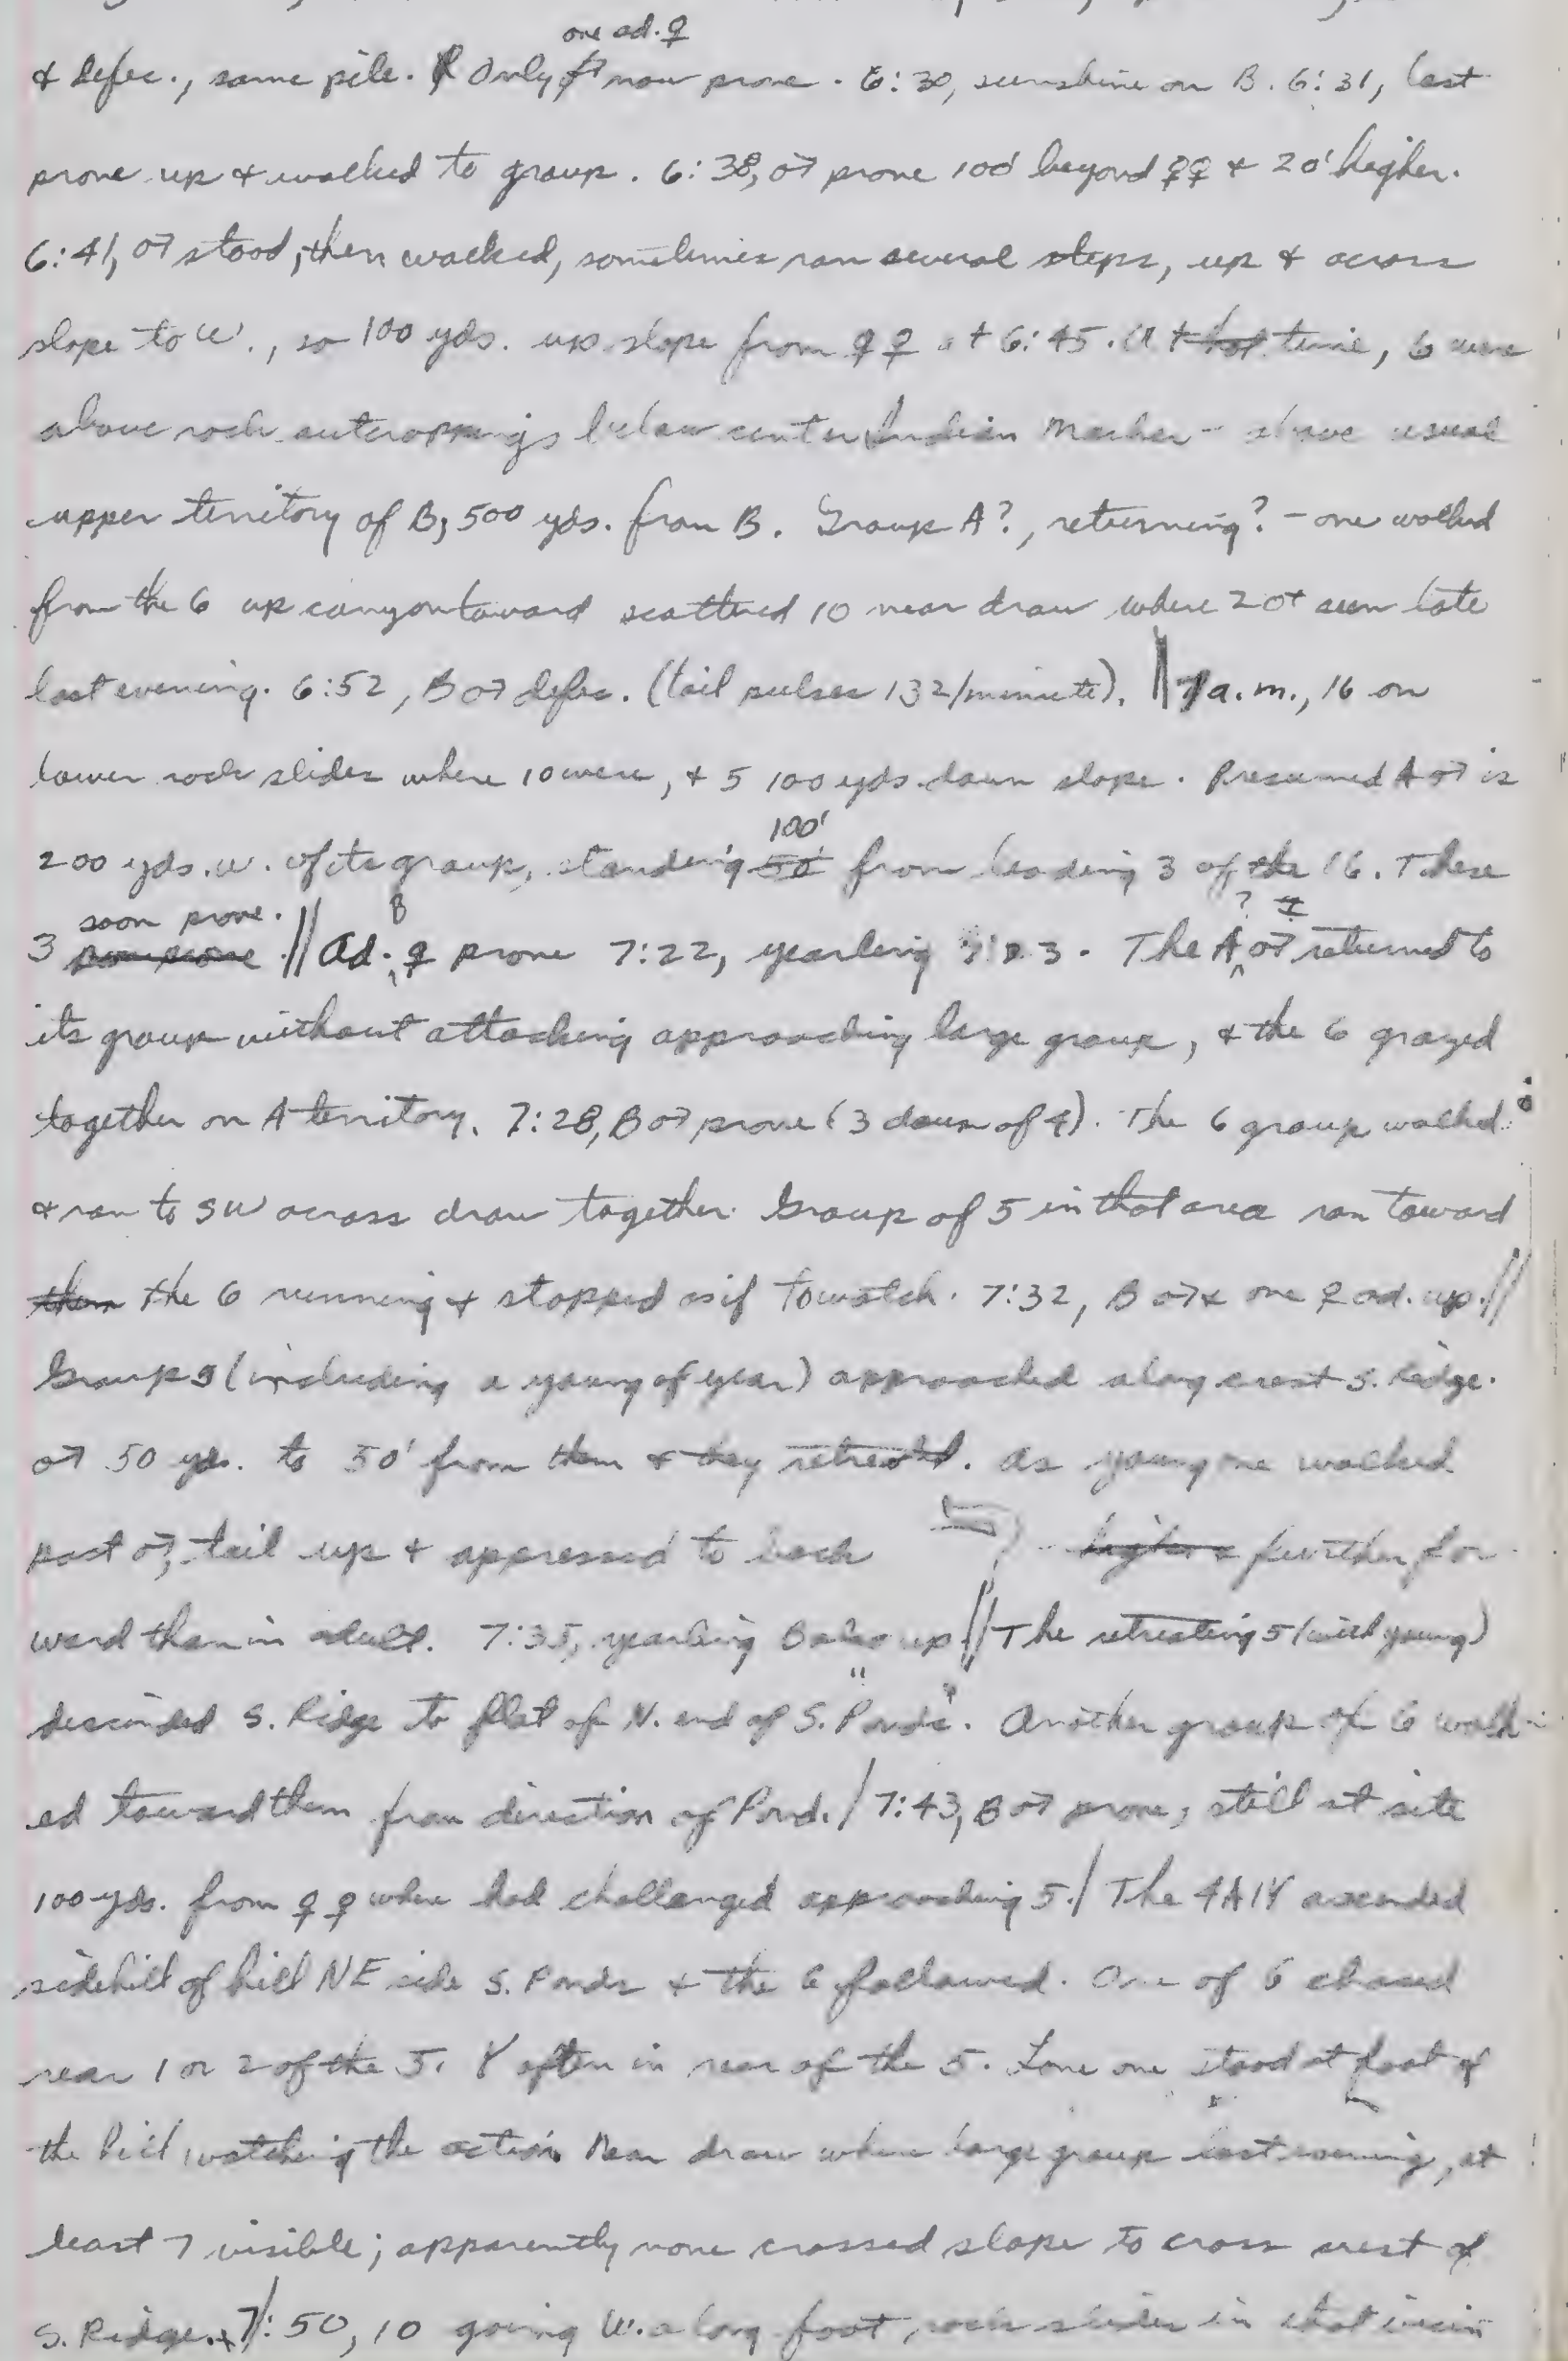 one ad. ♀
& defec., same pile. Only ♂ now prone. 6:30, sunshine on B. 6:31, last
prone up & walked to group. 6:38, ♂ prone 100' beyond ♀♀ & 20' higher.
6:41, ♂ stood, then walked, sometimes ran several steps, up & across
slope to W., so 100 yds. up slope from ♀♀ at 6:45. At that time, 6 were
above rock outcroppings below center Indian Marker - above usual
upper territory of B, 500 yds. from B. Group A?, returning? - one walked
from the 6 up canyon toward scattered 10 near draw where 20+ seen late
last evening. 6:52, B ♂ defec. (tail pulses 132/minute). || 7 a.m., 16 on
lower rock slides where 10 were, & 5 100 yds. down slope. Presumed A ♂ is
100'
200 yds. w. of its group, standing 50' from leading 3 of the 16. These
soon prone. B ? I
3 || Ad. ♀ prone 7:22, yearling 7:23. The A ♂ returned to
its group without attacking approaching large group, & the 6 grazed
together on A territory. 7:28, B ♂ prone (3 down of 4). The 6 group walked
& ran to SW across draw together. Group of 5 in that area ran toward
them the 6 running & stopped as if to watch. 7:32, B ♂ & one ♀ ad. up. ||
Group 5 (including a young of year) approached along crest S. Ridge.
♂ 50 yds. to 50' from them & they retreated. As young one walked
past ♂, tail up & appressed to back higher & further for
ward than in adult. 7:35, yearling B also up || The retreating 5 (with young)
descended S. Ridge to flat of N. end of S. "Ponds". Another group of 6 walk-
ed toward them from direction of Pond. / 7:43, B ♂ prone, still at site
100 yds. from ♀♀ where had challenged approaching 5. / The 4A1Y ascended
sidehill of hill NE side S. Ponds & the 6 followed. One of 6 chased
rear 1 or 2 of the 5. Y often in rear of the 5. Lone one stood at foot of
the hill watching the action. Near draw where large group last evening, at
least 7 visible; apparently none crossed slope to cross crest of
S. Ridge. 7:50, 10 going W. along foot, rock slides in that